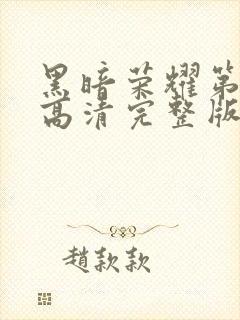 黑暗荣耀第
高清完整版
赵款款